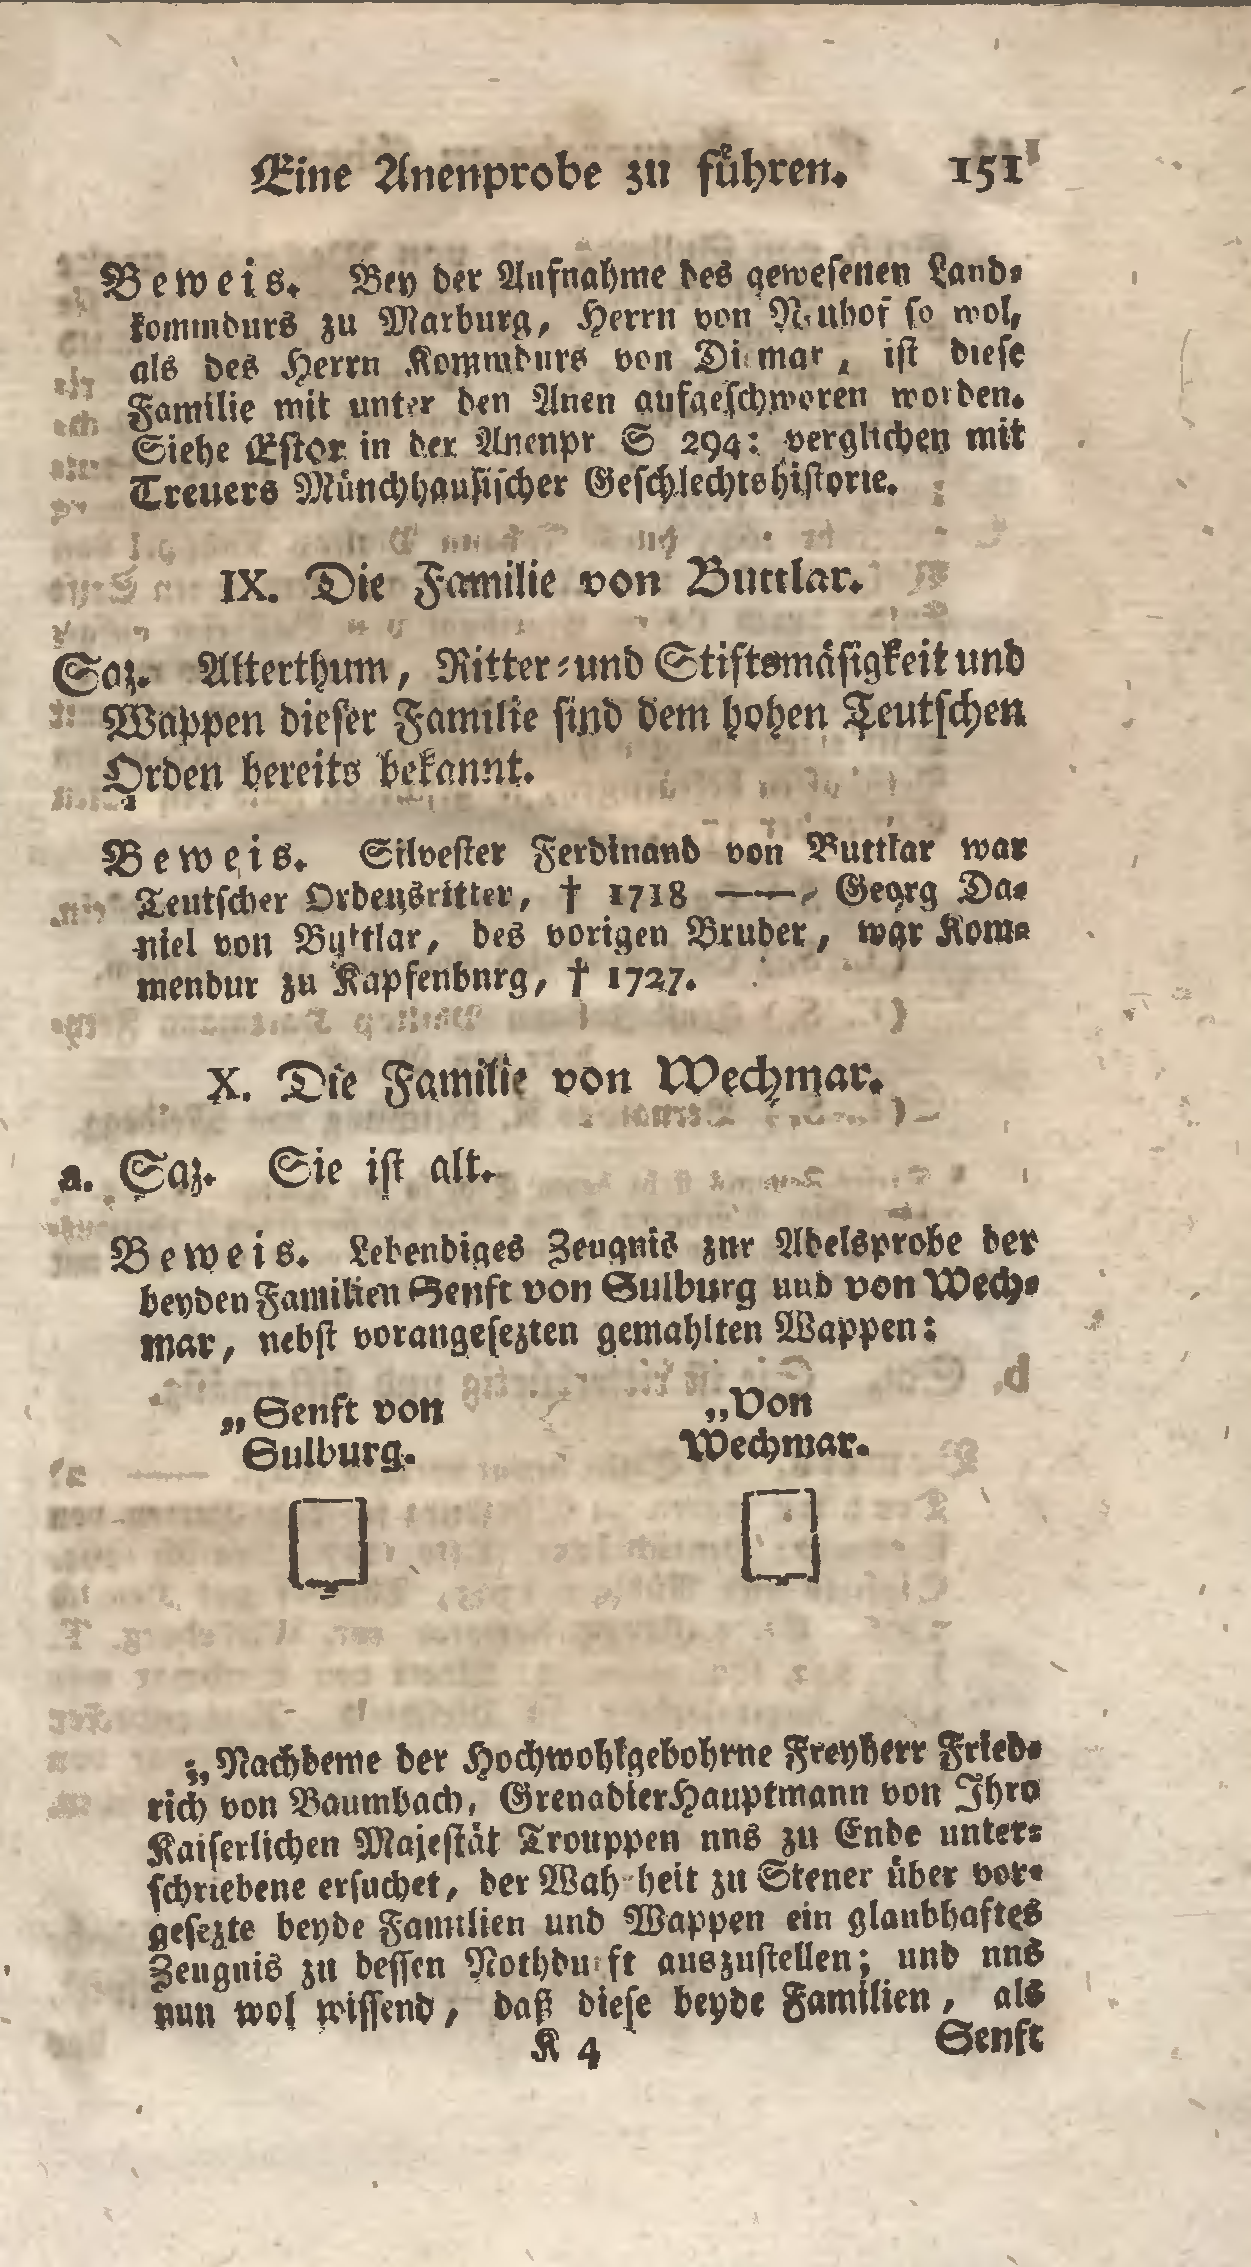 Eine Anenprobe zu führen. 151
Beweis. Bey der Aufnahme des gewesenen Land-
kommdurs zu Marburg, Herrn von Neuhof so wol,
als des Herrn Kommdurs von Diemar, ist diese
Familie mit unter den Anen aufgeschworen worden.
Siehe Estor in der Anenpr S 294: verglichen mit
Treuers Münchhausischer Geschlechtshistorie.
IX. Die Familie von Buttlar.
Saz. Alterthum, Ritter-und Stiftsmäsigkeit und
Wappen dieser Familie sind dem hohen Teutschen
Orden bereits bekannt.
Beweis. Silvester Ferdinand von Buttlar war
Teutscher Ordensritter, † 1718 —— Georg Da-
niel von Buttlar, des vorigen Bruder, war Kom-
mendur zu Kapfenbnrg, † 1727.
X. Die Familie von Wechmar.
a. Saz. Sie ist alt.
Beweis. Lebendiges Zeugnis znr Adelsprobe der
beyden Familien Senft von Sulburg und von Wech-
mar, nebst vorangesezten gemahlten Wappen:
„Senft von
Sulburg.
„Von
Wechmar.
„Nachdeme der Hochwohlgebohrne Freyherr Fried-
rich von Baumbach, GrenadierHauptmann von Ihro
Kaiserlichen Majestät Trouppen nns zu Ende unter-
schriebene ersuchet, der Wahrheit zu Stener über vor-
gesezte beyde Familien und Wappen ein glaubhaftes
Zeugnis zu dessen Nothdurft auszustellen; und nns
nun wol wissend, daß diese beyde Familien, als
K 4 Senft